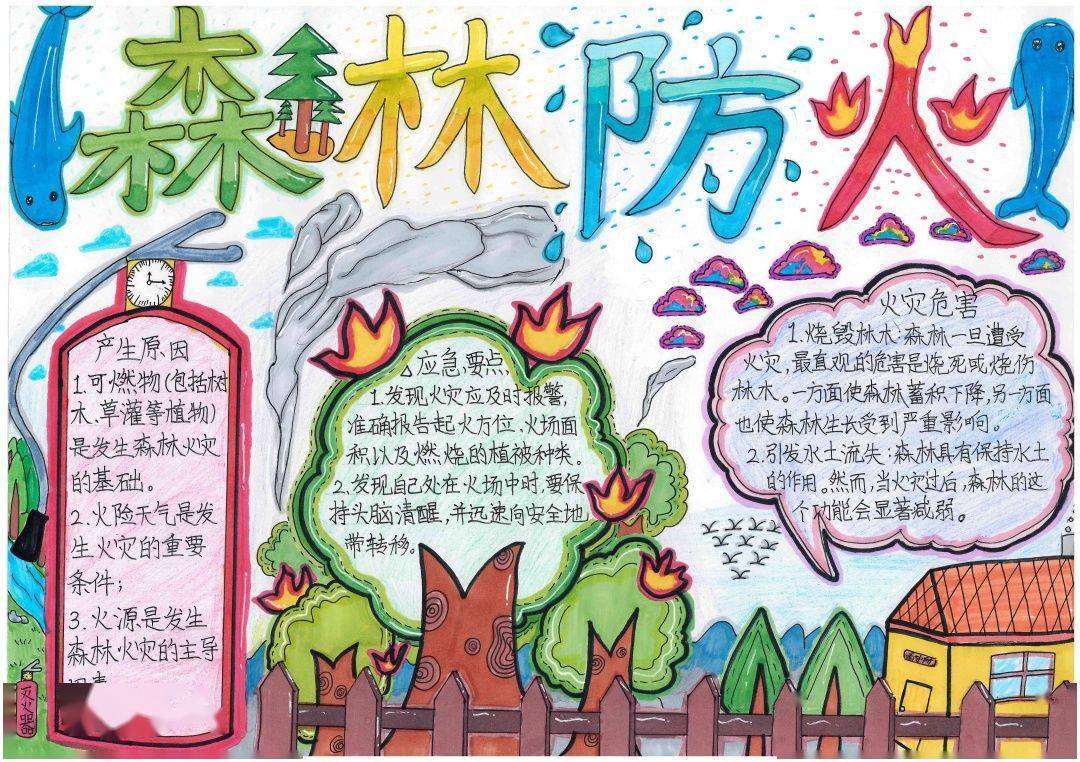 森林防火
产生原因
1.可燃物(包括树
木、草灌等植物)
是发生森林火灾
的基础。
2.火险天气是发
生火灾的重要
条件;
3.火源是发生
森林火灾的主导
应急要点
1.发现火灾应及时报警,
准确报告起火方位、火场面
积以及燃烧的植被种类。
2.发现自己处在火场中时,要保
持头脑清醒,并迅速向安全地
带转移。
火灾危害
1.烧毁林木:森林一旦遭受
火灾,最直观的危害是烧死或烧伤
林木。一方面使森林蓄积下降,另一方面
也使森林生长受到严重影响。
2.引发水土流失:森林具有保持水土
的作用。然而,当火灾过后,森林的这
个功能会显著减弱。
灭火器